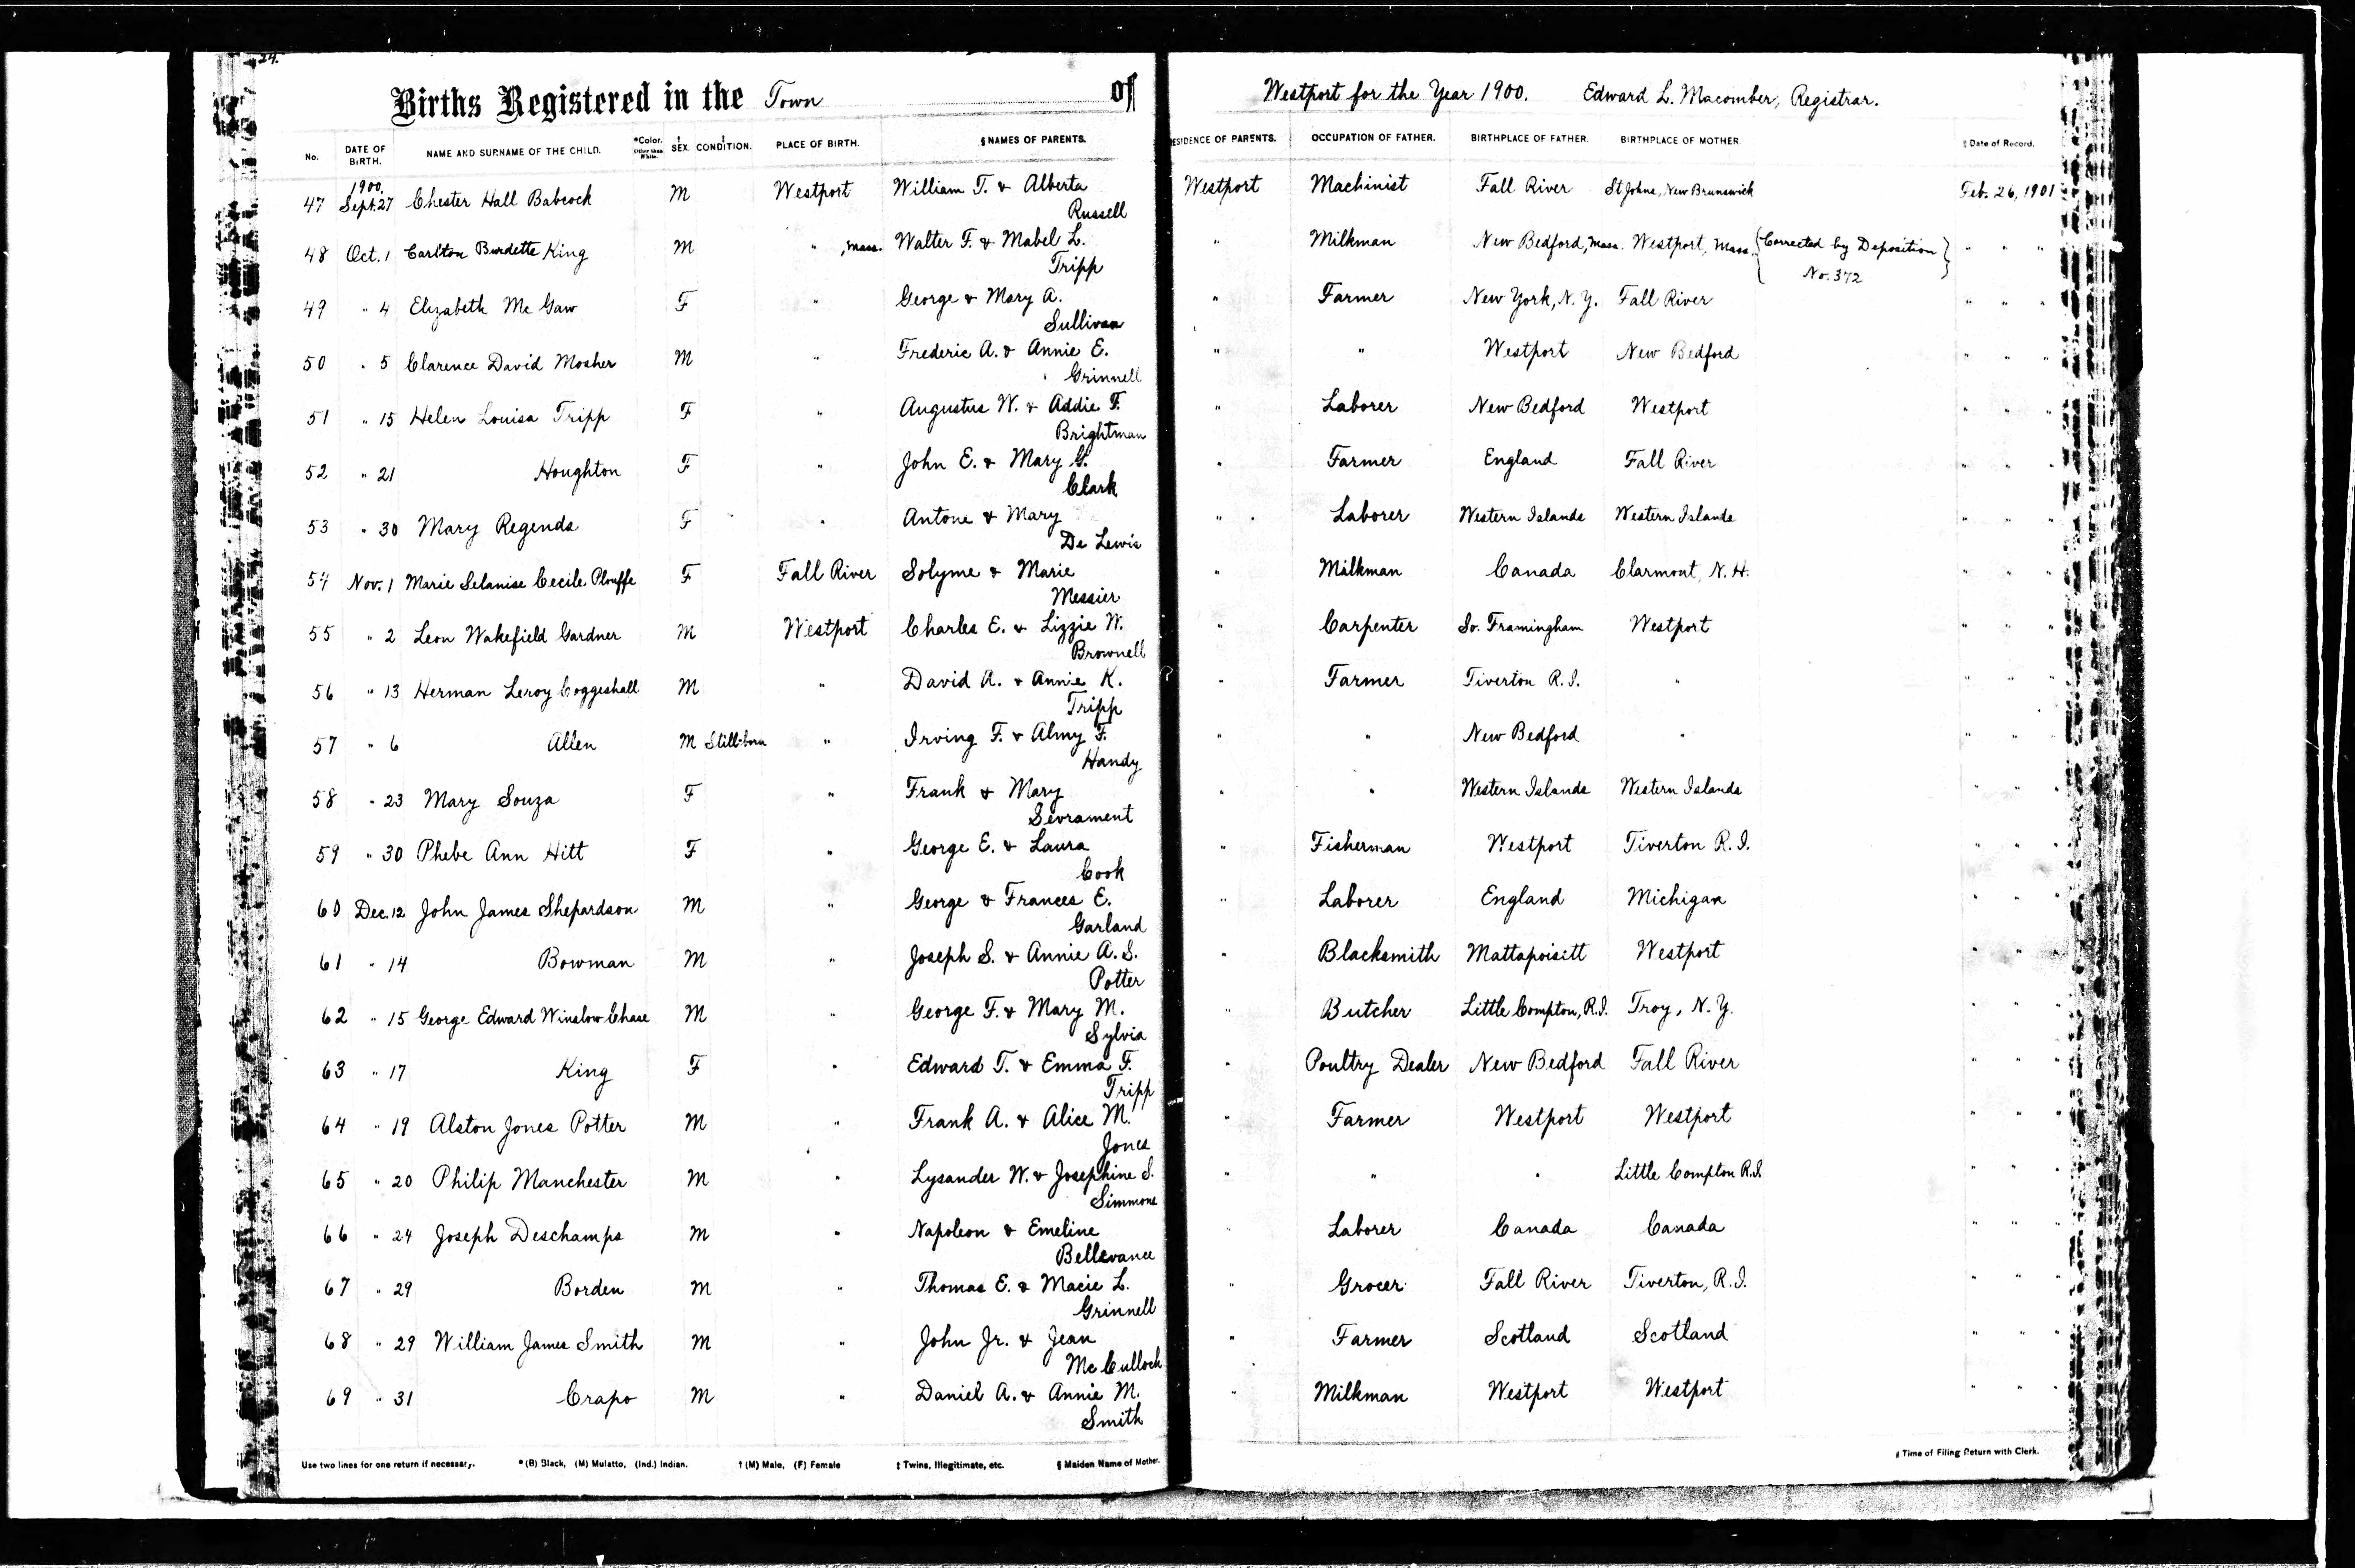 24.
Births Registered in the Town of Westport for the Year 1900. Edward L. Macomber, Registrar.
No. DATE OF BIRTH. NAME AND SURNAME OF THE CHILD. *Color. Other than White. † SEX. ‡ CONDITION. PLACE OF BIRTH. § NAMES OF PARENTS. RESIDENCE OF PARENTS. OCCUPATION OF FATHER. BIRTHPLACE OF FATHER. BIRTHPLACE OF MOTHER. ‖ Date of Record.
1900.
47 Sept. 27 Chester Hall Babcock M Westport William T. & Alberta Westport Machinist Fall River St Johns, New Brunswick Feb. 26, 1901
Russell
48 Oct. 1 Carlton Burdette King M " , Mass. Walter F. & Mabel L. " Milkman New Bedford, Mass. Westport, Mass. { Corrected by Deposition } " " "
Tripp No. 372
49 " 4 Elizabeth Mc Gaw F " George & Mary A. " Farmer New York, N.Y. Fall River " " "
Sullivan
50 " 5 Clarence David Mosher M " Frederic A. & Annie E. " " Westport New Bedford " " "
Grinnell
51 " 15 Helen Louisa Tripp F " Augustus W. & Addie F. " Laborer New Bedford Westport " " "
Brightman
52 " 21 Houghton F " John E. & Mary G. " Farmer England Fall River " " "
Clark
53 " 30 Mary Regends F " Antone & Mary " Laborer Western Islands Western Islands " " "
De Lewis
54 Nov. 1 Marie Selanise Cecile Plouffe F Fall River Solyme & Marie " Milkman Canada Clarmont, N.H. " " "
Messier
55 " 2 Leon Wakefield Gardner M Westport Charles E. & Lizzie W. " Carpenter So. Framingham Westport " " "
Brownell
56 " 13 Herman Leroy Coggeshall M " David A. & Annie K. " Farmer Tiverton R.I. " " " "
Tripp
57 " 6 Allen M Still-born " Irving F. & Almy F. " " New Bedford " " " "
Handy
58 " 23 Mary Souza F " Frank & Mary " " Western Islands Western Islands " " "
Sevrament
59 " 30 Phebe Ann Hitt F " George E. & Laura " Fisherman Westport Tiverton R.I. " " "
Cook
60 Dec. 12 John James Shepardson M " George & Frances E. " Laborer England Michigan " " "
Garland
61 " 14 Bowman M " Joseph S. & Annie A.S. " Blacksmith Mattapoisitt Westport " " "
Potter
62 " 15 George Edward Winslow Chase M " George F. & Mary M. " Butcher Little Compton, R.I. Troy, N.Y. " " "
Sylvia
63 " 17 King F " Edward T. & Emma F. " Poultry Dealer New Bedford Fall River " " "
Tripp
64 " 19 Alston Jones Potter M " Frank A. & Alice M. " Farmer Westport Westport " " "
Jones
65 " 20 Philip Manchester M " Lysander W. & Josephine S. " " " Little Compton R.I. " " "
Simmons
66 " 24 Joseph Deschamps M " Napoleon & Emeline " Laborer Canada Canada " " "
Bellevance
67 " 29 Borden M " Thomas E. & Macie L. " Grocer Fall River Tiverton, R.I. " " "
Grinnell
68 " 29 William James Smith M " John Jr. & Jean " Farmer Scotland Scotland " " "
Mc Culloch
69 " 31 Crapo M " Daniel A. & Annie M. " Milkman Westport Westport " " "
Smith
Use two lines for one return if necessary. *(B) Black, (M) Mulatto, (Ind.) Indian. †(M) Male, (F) Female ‡ Twins, Illegitimate, etc. § Maiden Name of Mother. ‖ Time of Filing Return with Clerk.